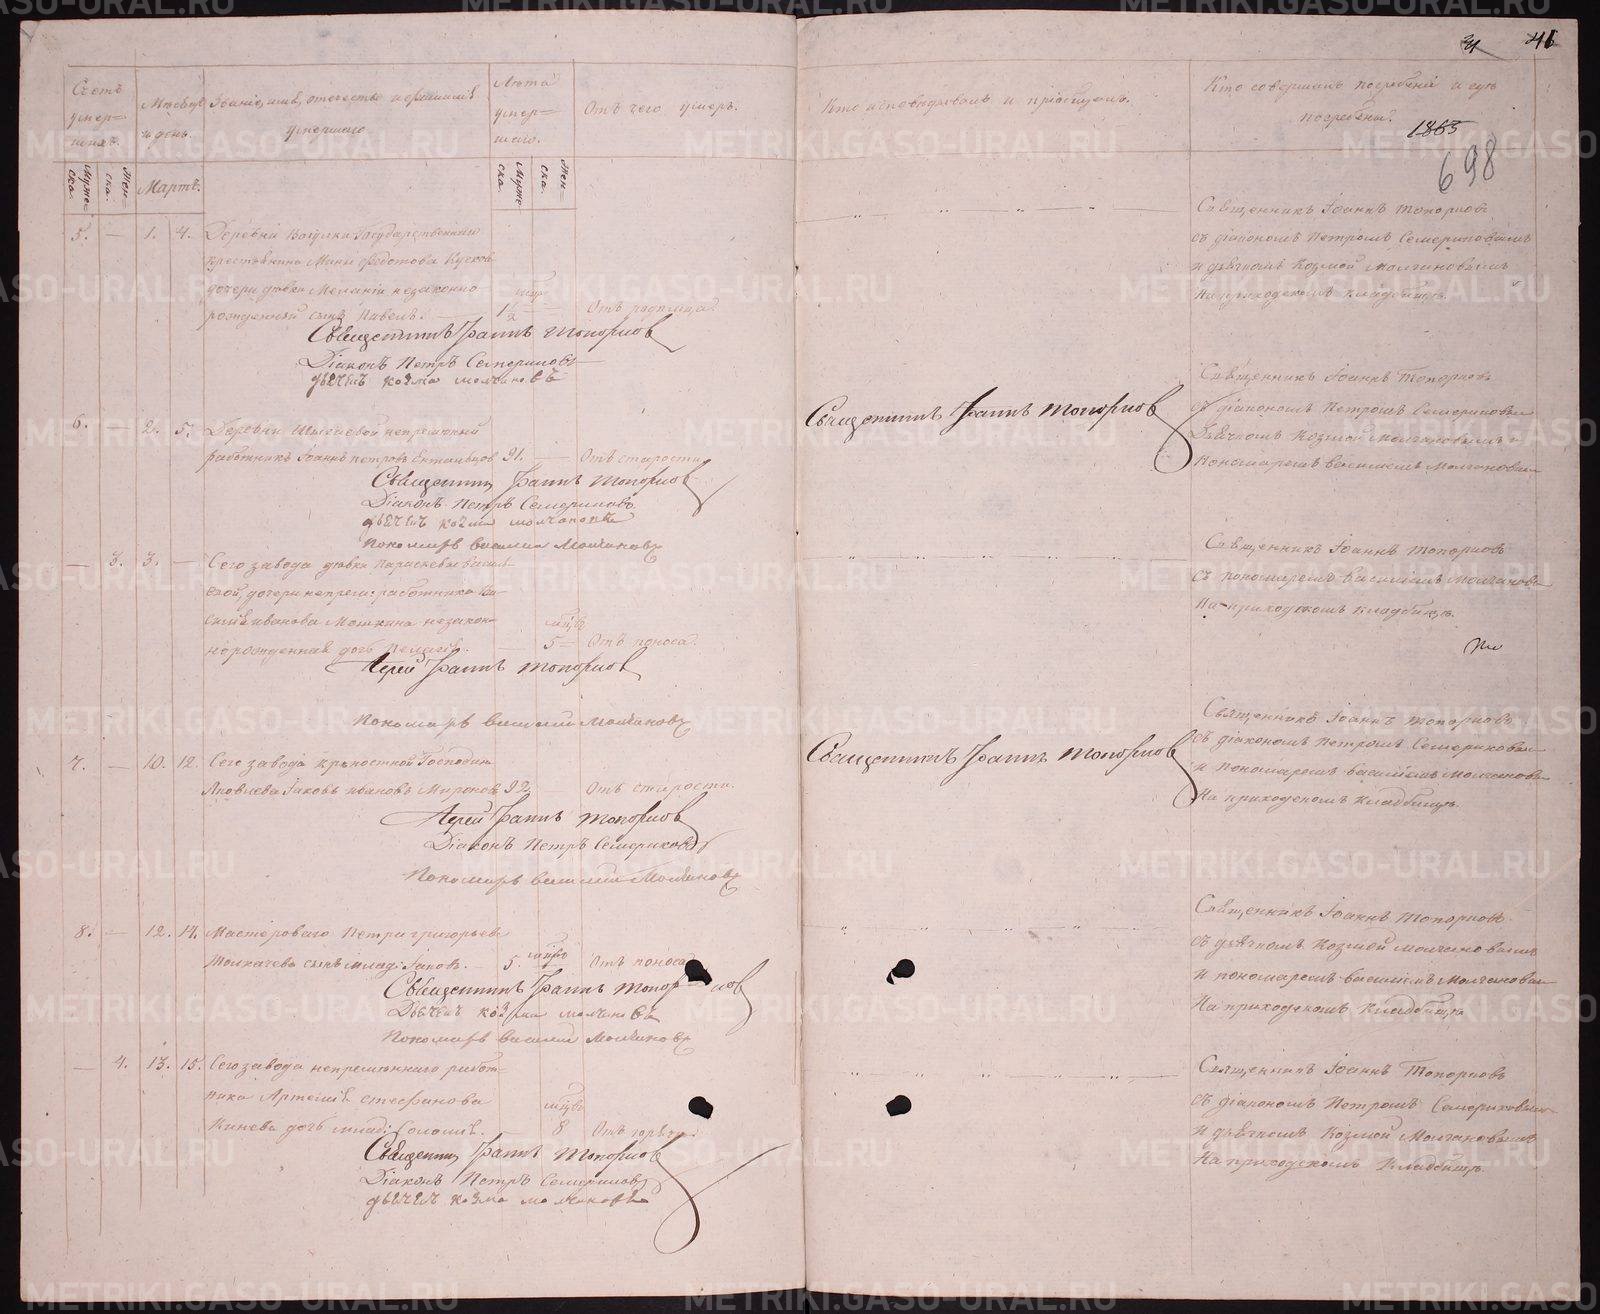 41
Счетъ умер= шихъ.
Мѣсяцъ и день.
Званіе, имя, отчество и фамилія умершаго
Лѣта умер= шаго.
Отъ чего умеръ.
Кто исповѣдывалъ и пріобщалъ.
Кто совершалъ погребеніе и гдѣ погребены.
1863
698
Муже= ска.
Жен= ска.
Мартъ.
Муже ска.
Жен= ска.
5. — 1. 4. Деревни Государственнаго
крестьянина Федотова
дочери дѣвки Меланіи незаконно
рожденный сынъ Павелъ. — 1½ — Отъ родимца.
Священникъ Іоаннъ Топорковъ
Діаконъ Петръ Семериковъ
дьячекъ козма молчановъ
Священникъ Іоаннъ Топорковъ
съ діакономъ Петромъ Семериковымъ
и дьячкомъ Козмой Молчановымъ
На приходскомъ кладбищѣ.
6. — 2. 5. Деревни непремѣнный
работникъ Іоаннъ Петровъ 91. — Отъ старости
Священникъ Іоаннъ Топорковъ
Діаконъ Петръ Семериковъ
дьячекъ козма молчановъ
Пономарь василій Молчановъ
Священникъ Іоаннъ Топорковъ
Священникъ Іоаннъ Топорковъ
съ діакономъ Петромъ Семериковым
Дьячкомъ Козмой Молчановымъ и
Пономаремъ Василіемъ Молчановым
— 3. 3. — Сего завода дѣвки Параскевы Василь
евой, дочери непрем: работника Ва-
силія Иванова Мошкина незакон-
норожденная дочь Пелагія. — 5 — Отъ поноса.
Іерей Іоаннъ Топорковъ
Пономарь василій Молчановъ
Священникъ Іоаннъ Топорковъ
съ пономаремъ Василіемъ Молчановы
На приходскомъ кладбищѣ.
7. — 10. 12. Сего завода крѣпостной Господина
Яковлева Іаковъ Ивановъ Мироновъ 92. — Отъ старости.
Іерей Іоаннъ Топорковъ
Діаконъ Петръ Семериковъ
Пономарь василій Молчановъ
Священникъ Іоаннъ Топорковъ
Священникъ Іоаннъ Топорковъ
съ діакономъ Петромъ Семериковым
и пономаремъ Василіемъ Молчановы
На приходскомъ кладбищѣ.
8. — 12. 14. Мастероваго Петра Григорьева
Толкачева сынъ млад: Іаковъ. — 5. — Отъ поноса
Священникъ Іоаннъ Топорковъ
Дьячекъ козма молчановъ
Пономарь василій Молчановъ
Священникъ Іоаннъ Топорковъ
съ дьячкомъ Козмой Молчановымъ
и пономаремъ Василіемъ Молчановым
На приходскомъ кладбищѣ
— 4. 13. 15. Сего завода непремѣннаго работ-
ника Артемія Стефанова
Кинева дочь млад: — 8
Священникъ Іоаннъ Топорковъ
Діаконъ Петръ Семериковъ
дьячекъ козма молчановъ
Священникъ Іоаннъ Топорковъ
съ діакономъ Петромъ Семериковым
и дьячкомъ Козмой Молчановымъ
На приходскомъ кладбищѣ.
METRIKI.GASO-URAL.RU